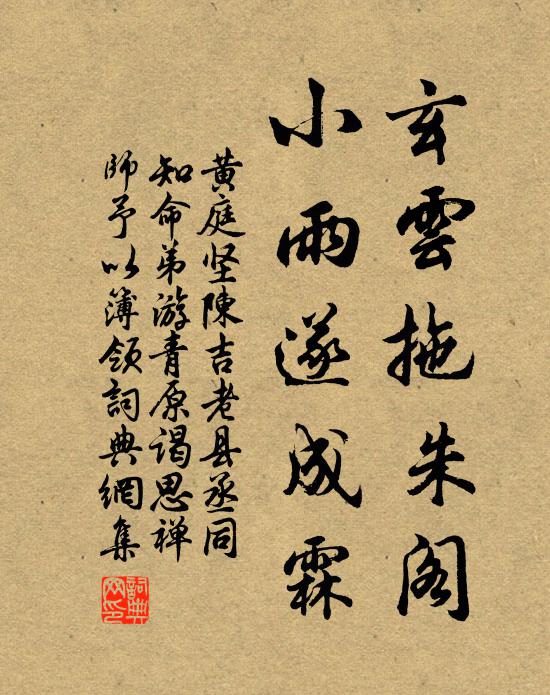 玄雲拖朱阁
小雨遂成霖
黄庭坚陳吉老县丞同
知命弟游青原谒思禅
師予以簿领詞典網集
詞典网印